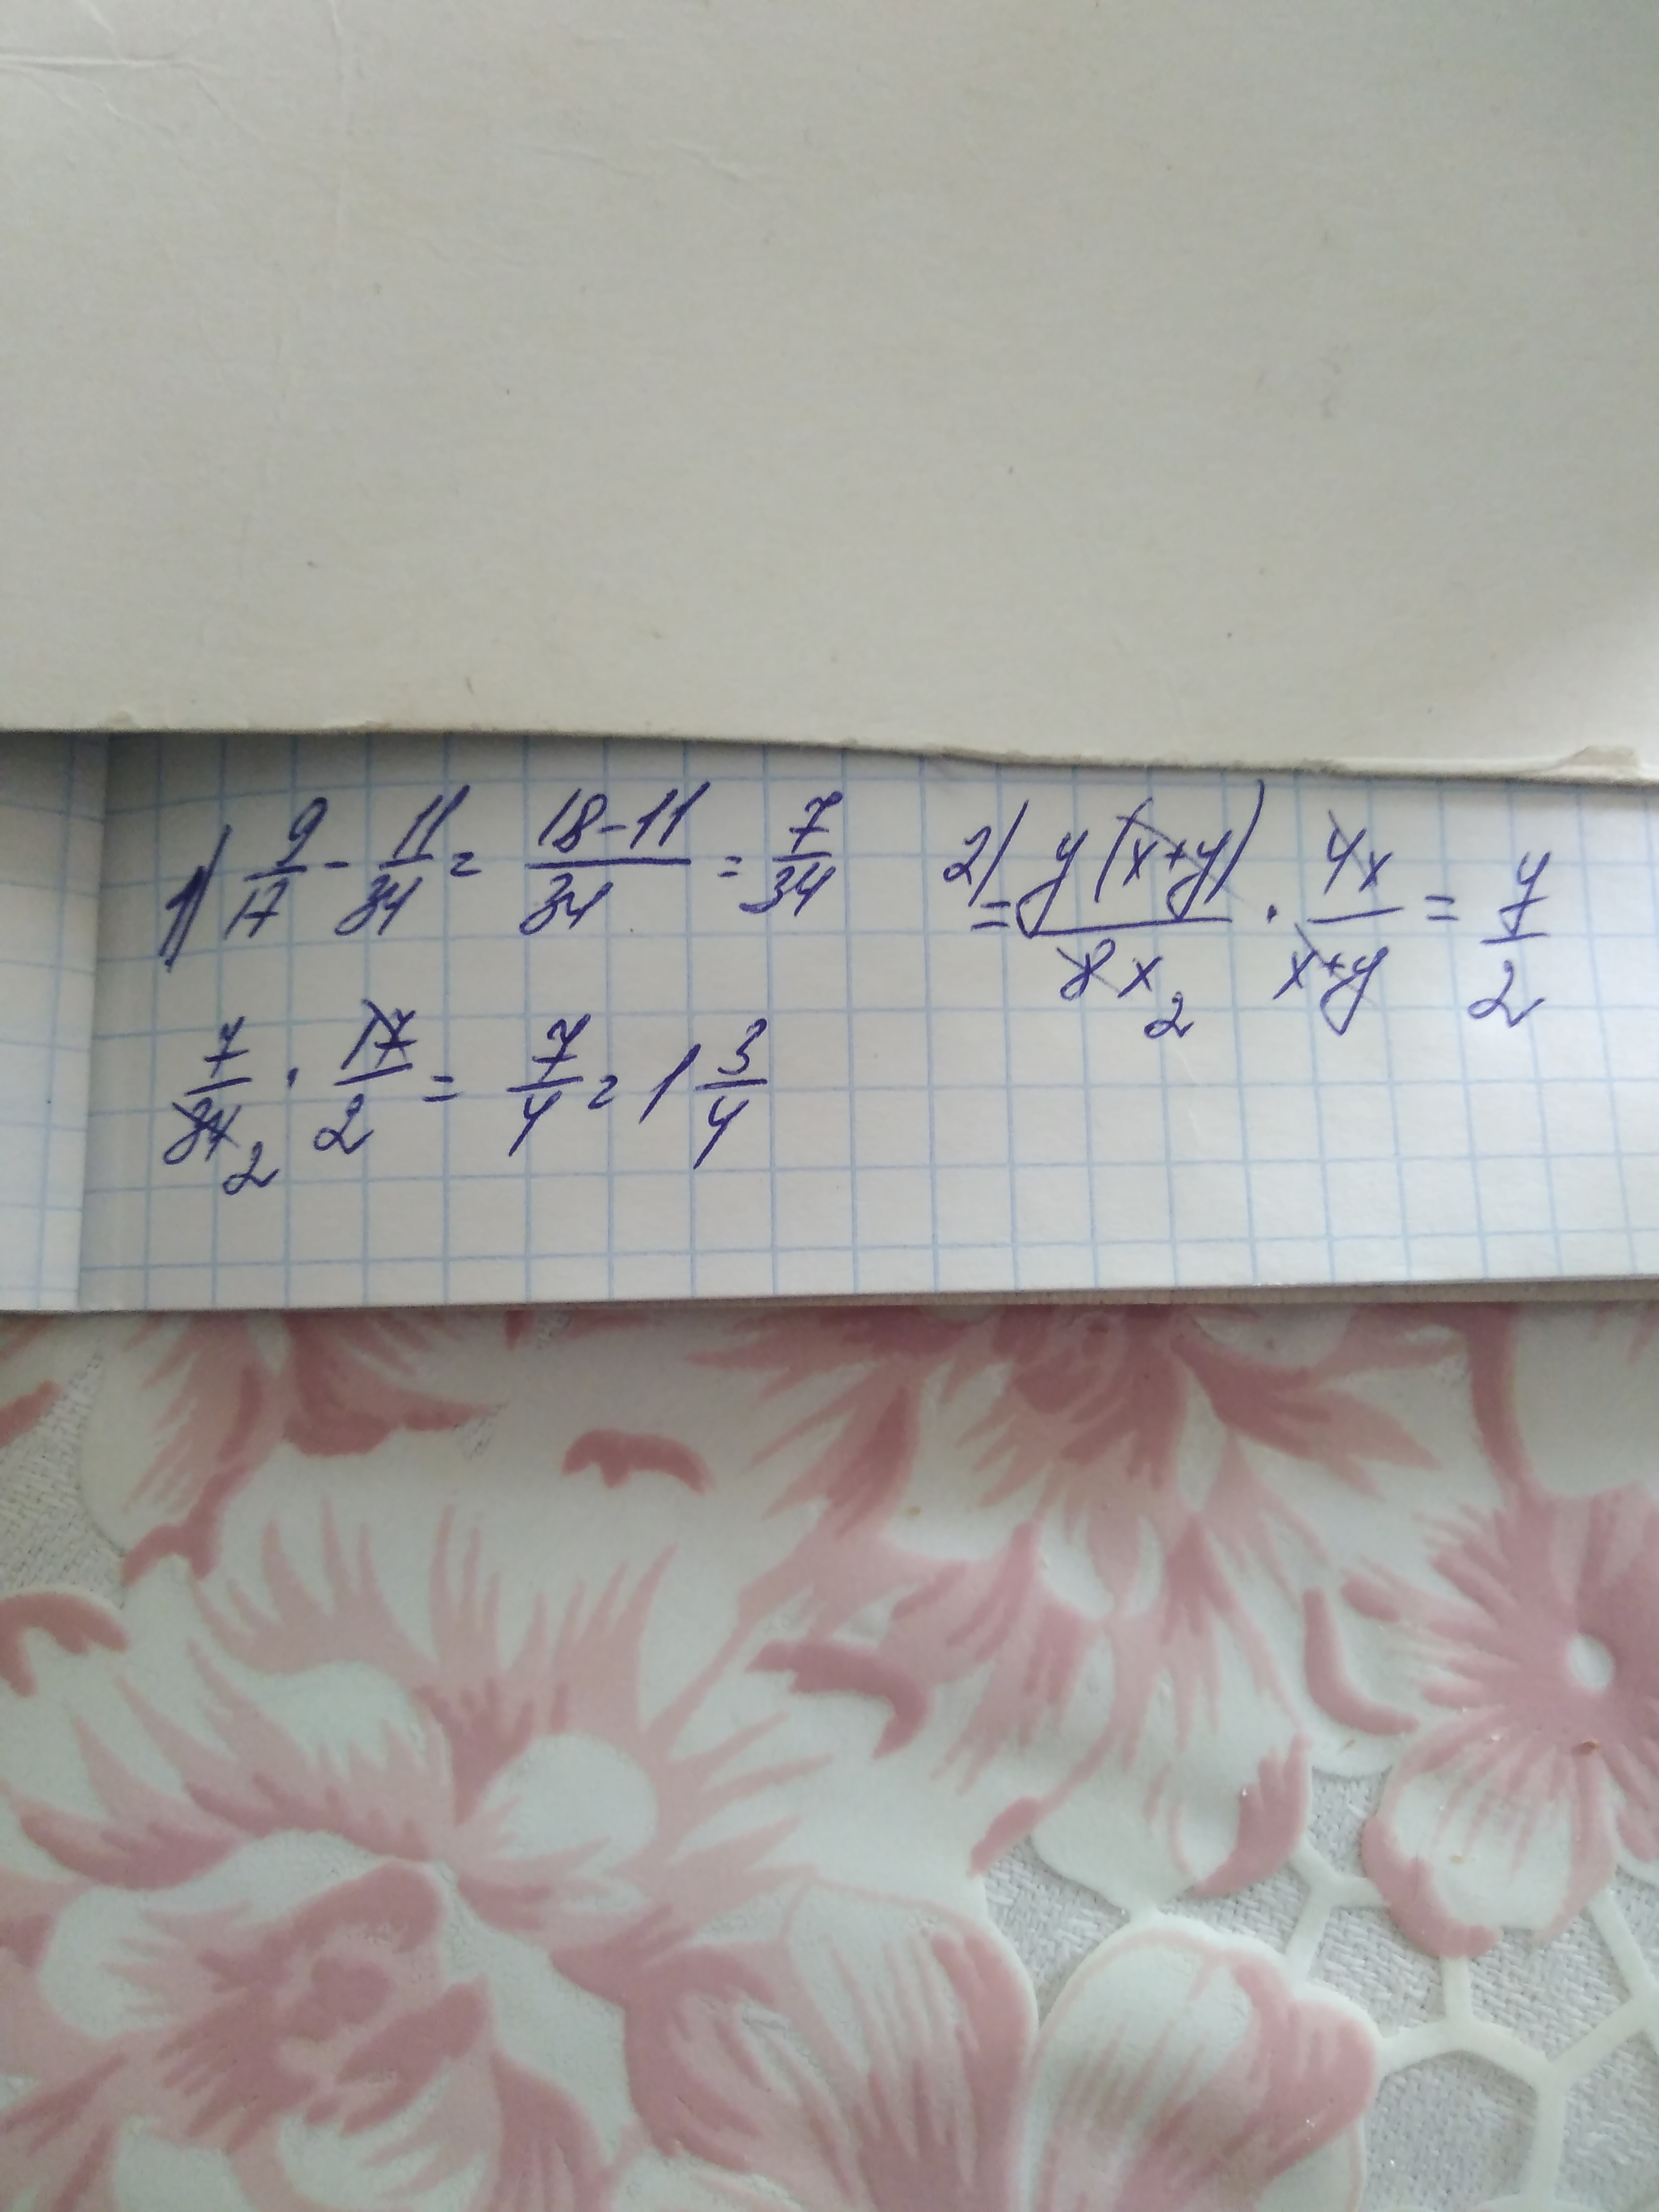 1) 9/17 - 11/34 = 18-11/34 = 7/34
7/34 2 · 17/2 = 7/4 = 1 3/4
2) = y(x+y)/8x 2 · 4x/x+y = y/2